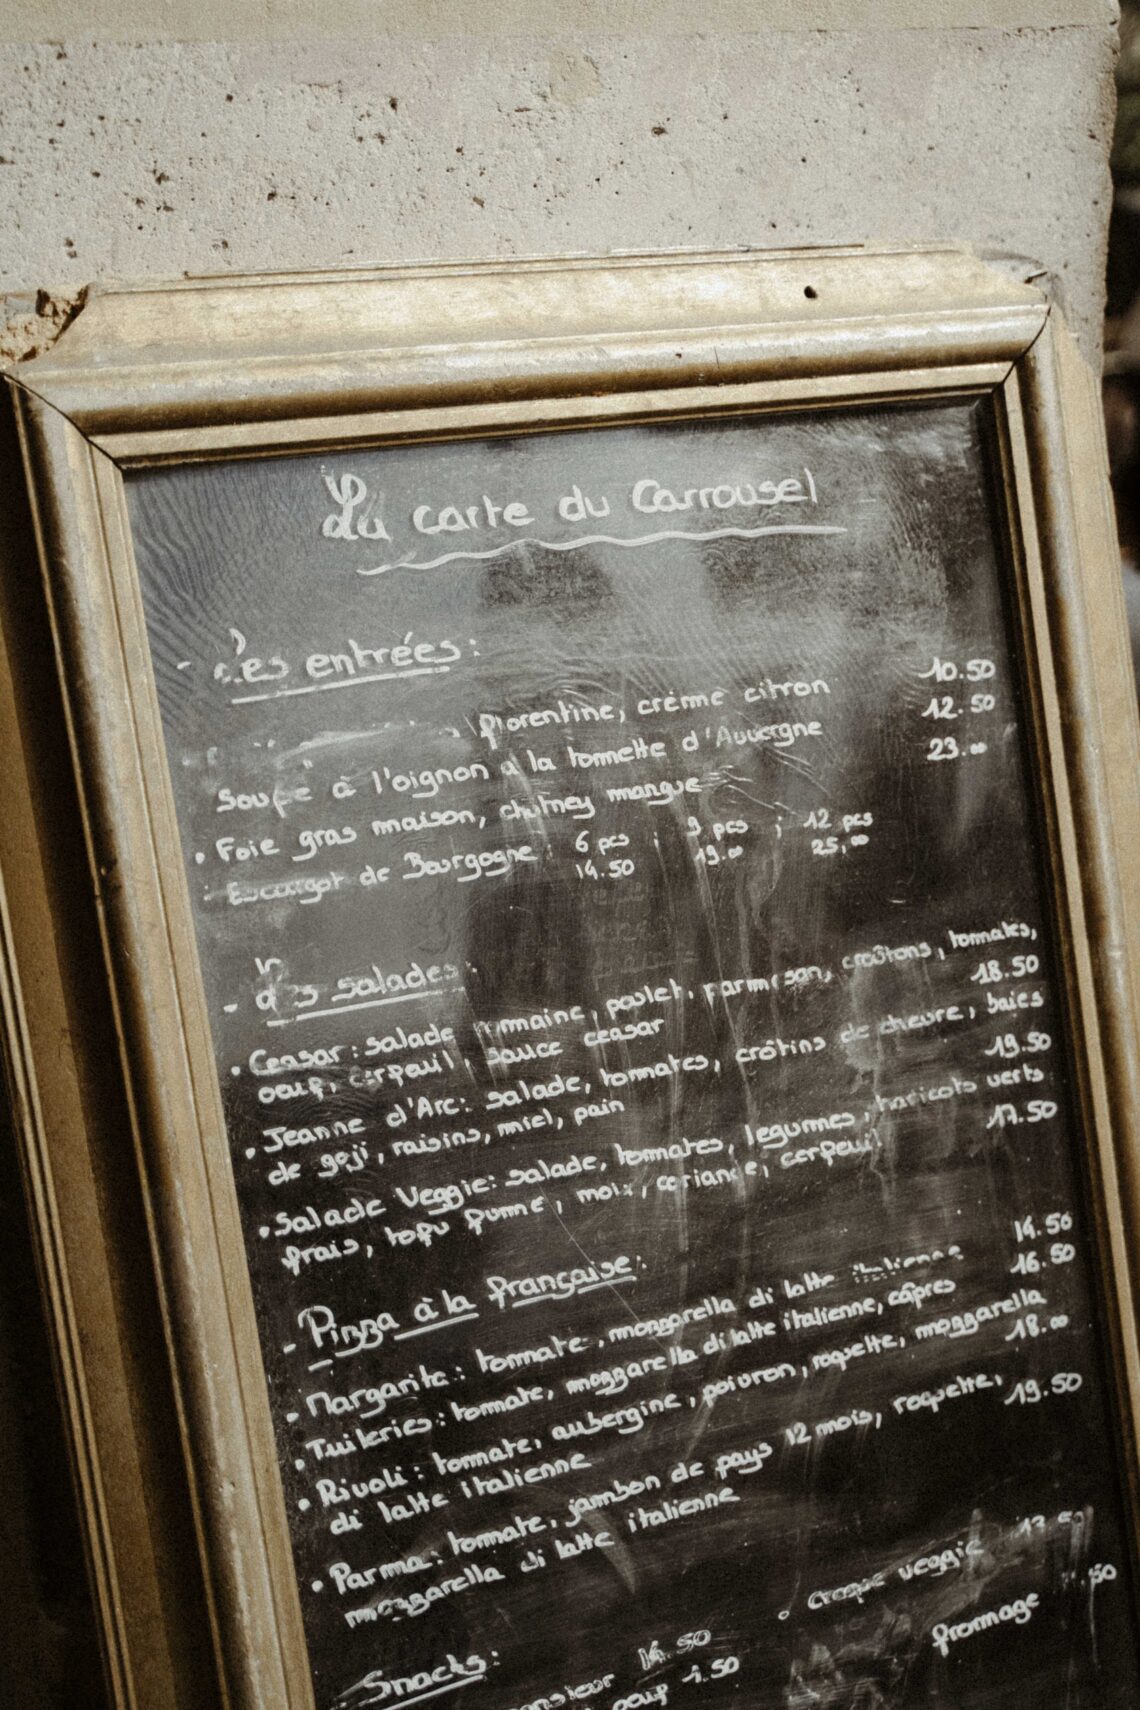 La carte du Carrousel
- Les entrées :
florentine, crème citron 10.50
Soupe à l'oignon à la tommette d'Auvergne 12.50
• Foie gras maison, chutney mangue 23.00
• Escargot de Bourgogne : 6 pcs ; 9 pcs ; 12 pcs
14.50 19.00 25,00
- Les salades :
• Ceasar : salade romaine, poulet, parmesan, croûtons, tomates,
oeuf, cerfeuil, sauce ceasar 18.50
• Jeanne d'Arc : salade, tomates, crôtins de chèvre, baies
de goji, raisins, miel, pain 19.50
• Salade Veggie : salade, tomates, legumes, haricots verts
frais, tofu fumé, coriande, cerfeuil 17.50
- Pizza à la française :
• Margarita : tommate, mozzarella di latte italienne 14.50
• Tuileries : tommate, mozzarella di latte italienne, câpres 16.50
• Rivoli : tommate, aubergine, poivron, roquette, mozzarella
di latte italienne 18.00
• Parma : tommate, jambon de pays 12 mois, roquette,
mozzarella di latte italienne 19.50
Snacks :
14.50
oeuf 1.50
° croque veggie
frommage